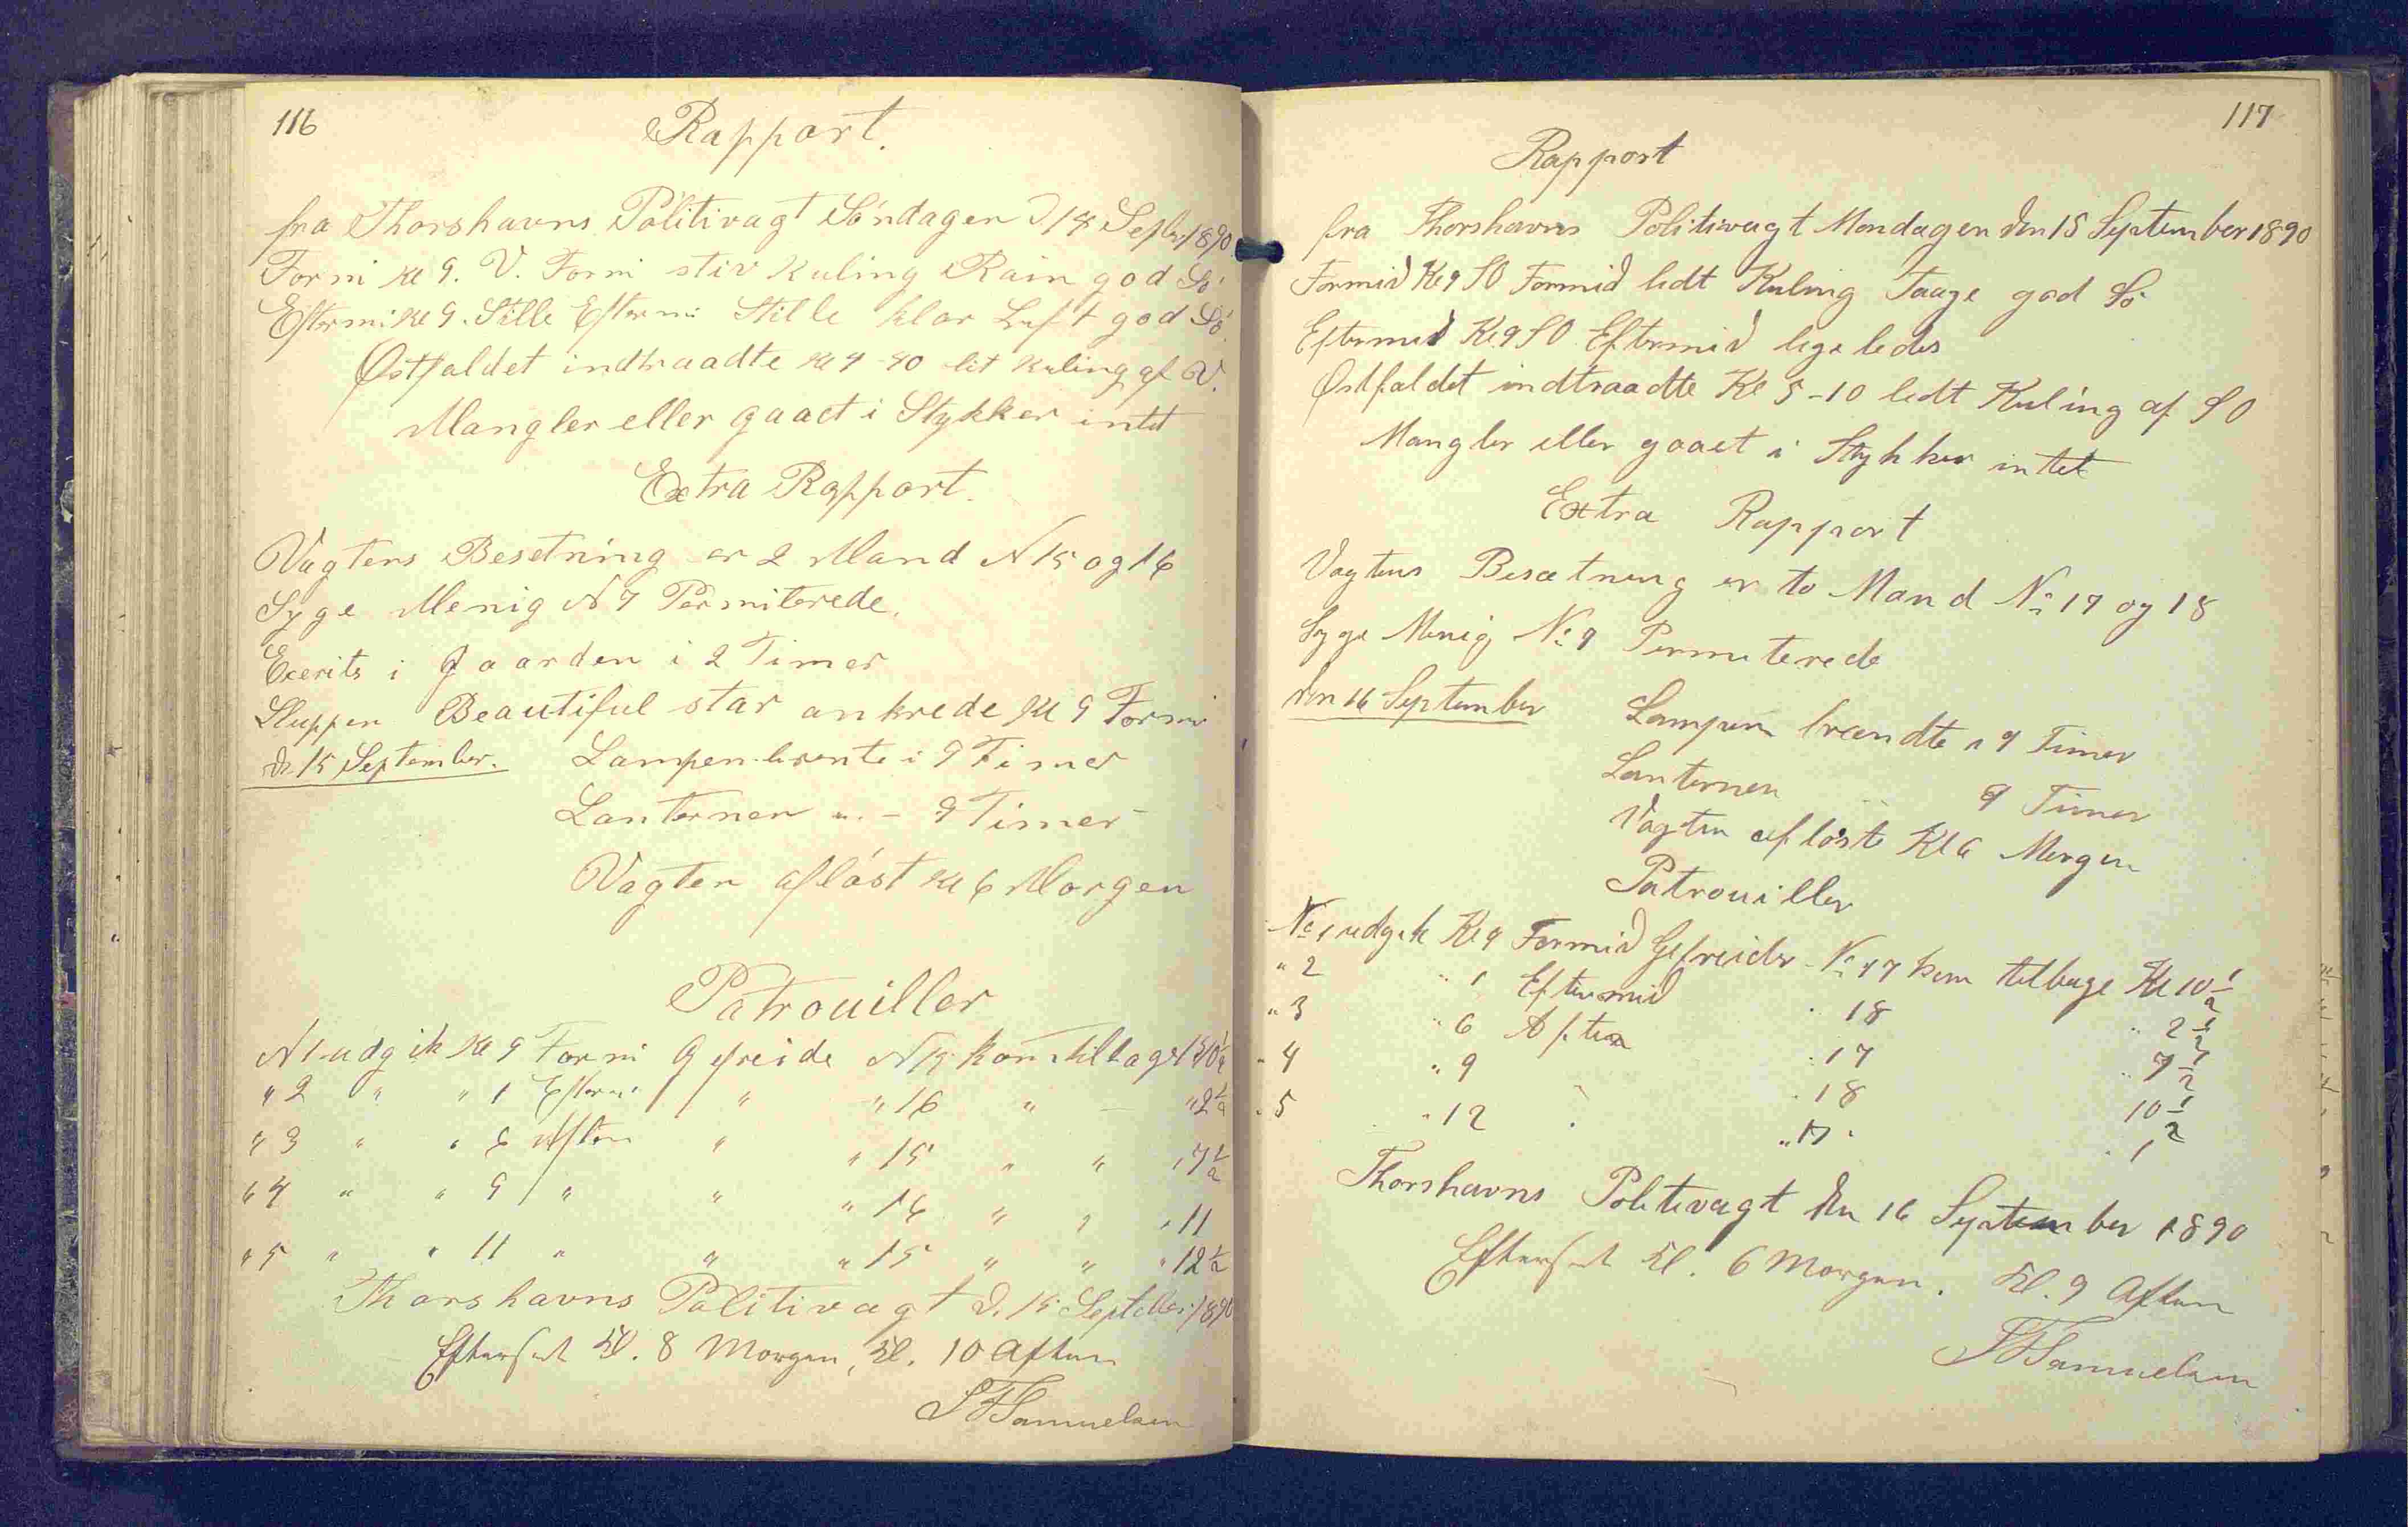 116
Rapport.
fra Thorshavns Politivagt Söndagen D 14 Septbr 1890
Formi Kl 9. V. Formi stiv Kuling Rain god Sö
Eftermi Kl 9. Stille Eftermi Stille klar Luft god Sö.
Østfaldet indtraadte Kl 4-40 lit Kuling af V.
Mangler eller gaaet i Stykker intet
Extra Rapport.
Vagtens Besetning er 2 Mand N 15 og 16
Syge Menig N 7 Permiterede.
Exerits i Gaarden i 2 Timer
Sluppen Beautiful star ankrede Kl 9 Formi
D. 15 September. Lampen brente i 9 Timer
Lanternen " - 9 Timer
Vagten aflöst Kl 6 Morgen
Patrouiller
N 1 udgik Kl 9 Formi Gefreide N 15 kom tilbage Kl 10 1/2
" 2 " " 1 Eftermi " " 16 " - " 2 1/2
" 3 " " 6 Aften " " 15 " " " 7 1/2
" 4 " " 9 " " " 16 " " " 11
" 5 " " 11 " " " 15 " " " 12 1/2
Thorshavns Politivagt D. 15 Septbr. 1890
Efterset Kl. 8 Morgen, Kl. 10 Aften
Samuelsen
117
Rapport
fra Thorshavns Politivagt Mondagen den 15 September 1890
Formid Kl 9 SO Formid lidt Kuling Taage god Sö
Eftermid Kl 9 SO Eftermid ligeledes
Østfaldet indtraadte Kl 5-10 lidt Kuling af SO
Mangler eller gaaet i Stykker intet
Extra Rapport
Vagtens Besætning er to Mand No 17 og 18
Syge Menig No 7 Permiterede
den 16 September Lampen brændte i 9 Timer
Lanternen " 9 Timer
Vagten aflöste Kl 6 Morgen
Patrouiller
No 1 udgik Kl 9 Formid Gefreider No 17 kom tilbage Kl 10 1/2
" 2 " 1 Eftermid " 18 " 2 1/2
" 3 " 6 Aften " 17 " 7 1/2
" 4 " 9 " 18 10 1/2
" 5 " 12 " " 17 " 1
Thorshavns Politivagt den 16 September 1890
Efterset Kl. 6 Morgen. Kl. 9 Aften
Samuelsen